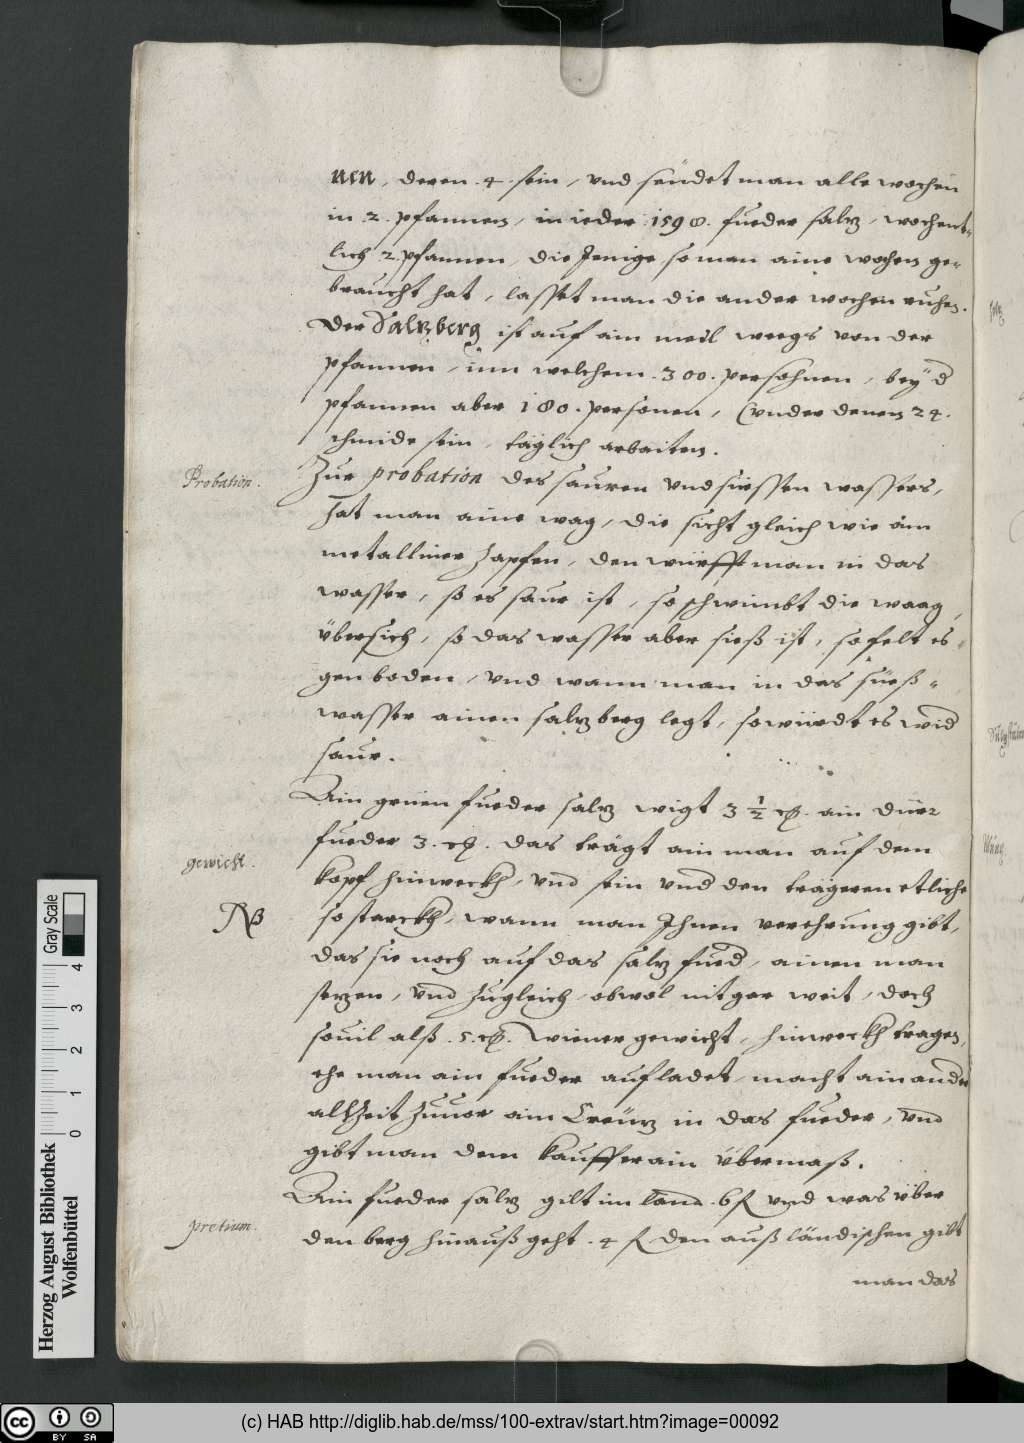 nen, deren .4. sein, vnd sendet man alle wochen
in .2. pfannen, in ieder .1598. fueder salz, wochent-
lich .2. pfannen, die Jenige so man aine wochen ge-
braucht hat, lasset man die ander wochen ruhen.
Der Salzberg ist auf ain meil weegs von der
pfannen, inn welchem .300. persohnen, beÿ d
pfannen aber 180. personen, (vnder denen 24.
schmide sein, täglich arbeiten.
Probation.
Zur probation des sauren vnd süessen wassers,
hat man aine wag, die sicht gleich wie ain
metalliner Zapfen, den würfft man in das
wasser, so es saur ist, so schwimbt die waag
übersich, so das wasser aber sieß ist, so felt es
gen boden, vnd wann man in das süeß-
wasser ainen salzberg legt, so würdt es wid
saur.
Ain grüen fueder salz wigt 3 1/2 cht. ain dürr
fueder 3. cht. das trägt ain man auf dem
gewicht.
kopf hinweckh, vnd sein vnd den trägeren etliche
NB
so starckh, wann man Ihnen verehrung gibt,
das sie noch auf das salz fued, ainen man
sezen, vnd zugleich, obwol nit gar weit, doch
souil alß .5. cht. wiener gewicht, hinweckh tragen,
ehe man ain fueder aufladet, macht ain ander
allzeit zuuor ain Creüz in das fueder, vnd
gibt man dem kauffer ain übermaß.
Ain fueder salz gilt im land .6 f vnd was über
pretium.
den berg hinauß geht .4 f den außländischen gibt
man das
Herzog August Bibliothek
Wolfenbüttel
0 1 2 3 4
Gray Scale
cc BY SA
(c) HAB http://diglib.hab.de/mss/100-extrav/start.htm?image=00092